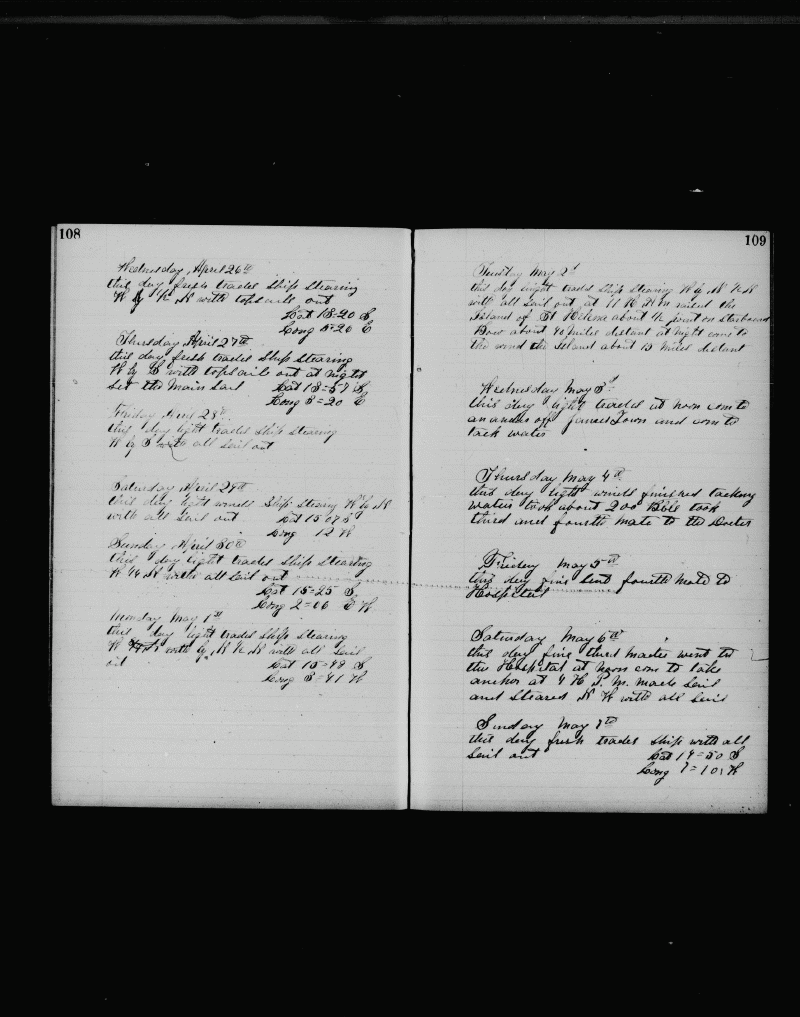 108
Wednesday April 26th
this day fresh trades Ship Stearing
W by N with topsails out
Lat 18=20 S
Long 5=20 E
Thursday April 27th
this day fresh trades Ship Stearing
W by N with topsails out at night
Set the Main Sail Lat 18=57 S
Long 3=20 E
Friday April 28th
this day light trades Ship Stearing
W by S with all Sail out
Saturday April 29th
this day light winds Ship Stearing W by N
with all Sail out Lat 15 07 S
Long 12 W
Sunday April 30th
this day light trades Ship Stearing
with all Sail out
Lat 15=25 S
Long 2=06 W
Monday May 1st
this day light trades Ship Stearing
W by N ½ N with all Sail
out Lat 15=49 S
Long 3=41 W
109
Tuesday May 2d
this day light trades Ship Stearing W by N ½ N
with all Sail out at 11 A.M raised the
Island of St Helena about ½ point on starboard
Bow about 40 miles distant at night come to
the wind the Island about 15 miles distant
Wednesday May 3d
this day light trades at noon com to
an ancor off James Town and com to
tack water
Thursday May 4th
this day light winds finished tacking
water took about 200 Bbls took
third and fourth mate to the Docter
Friday May 5th
this day fine Sent fourth Mate to
Hospital
Saturday May 6th
this day fine third Mate went to
the Hospital at Noon com to take
anchor at 4 H P. M. made Sail
and Steared N W with all Sail
Sunday May 7th
this day fresh trades Ship with all
Sail out Lat 14=50 S
Long 7=10 W